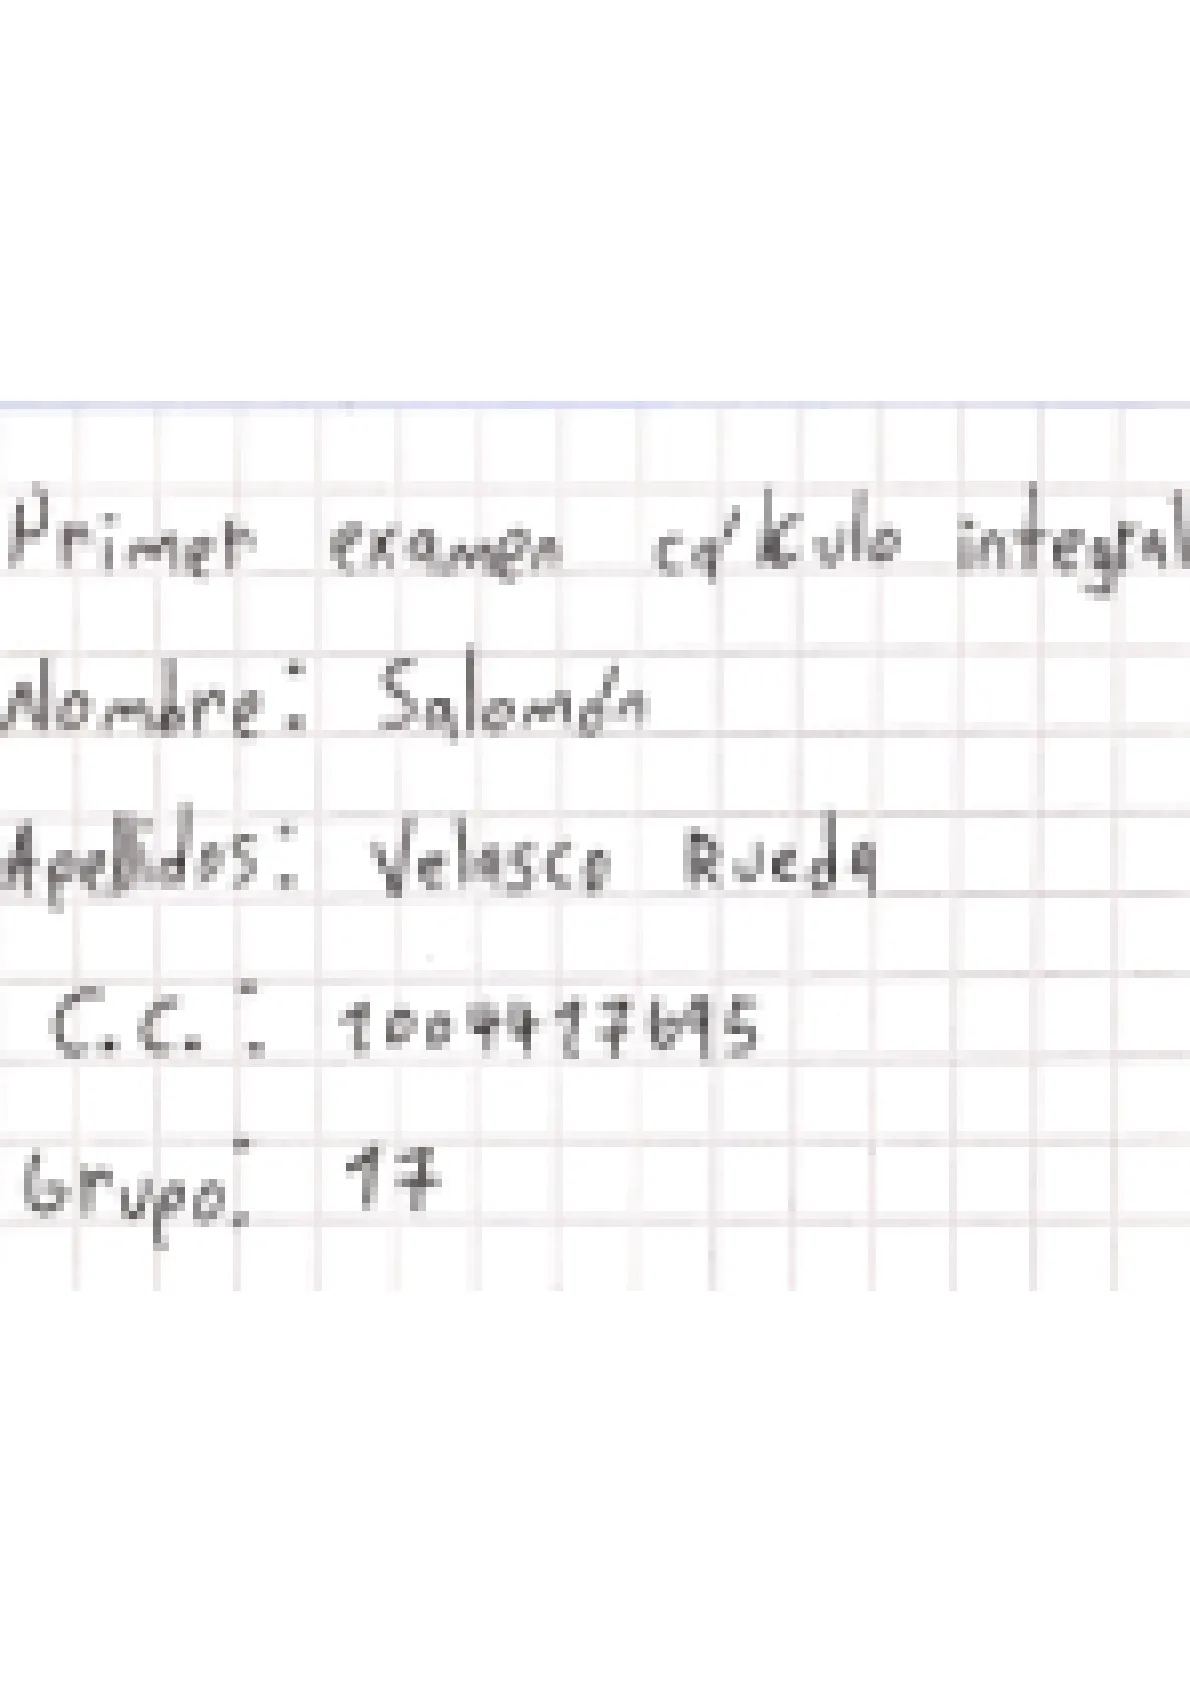 Primer examen cálculo integral
Nombre: Salomón
Apellidos: Velasco Rueda
C.C.:
Grupo: 17